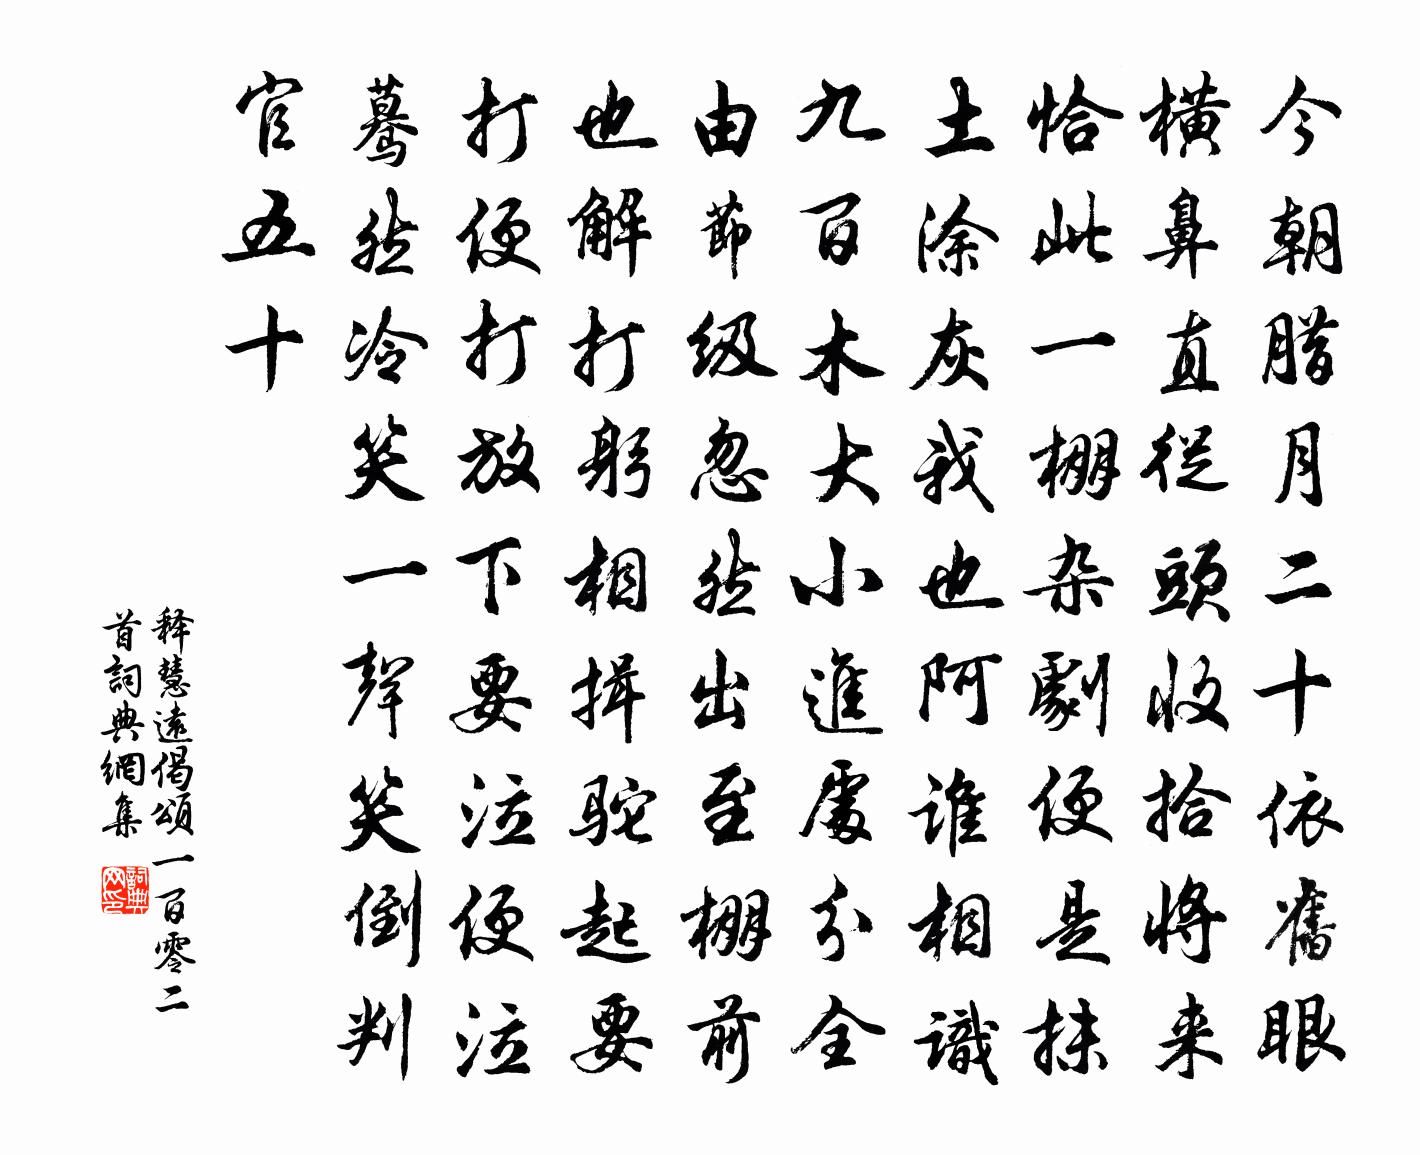 今朝腊月二十依舊眼
橫鼻直從頭收拾將来
恰此一棚杂劇便是抹
土涂灰我也阿谁相識
九百木大小進處分全
由節级忽然出至棚前
也解打躬相揖駝起要
打便打放下要泣便泣
驀然冷笑一聲笑倒判
官五十
释慧遠偈頌一百零二
首詞典網集
詞典网印